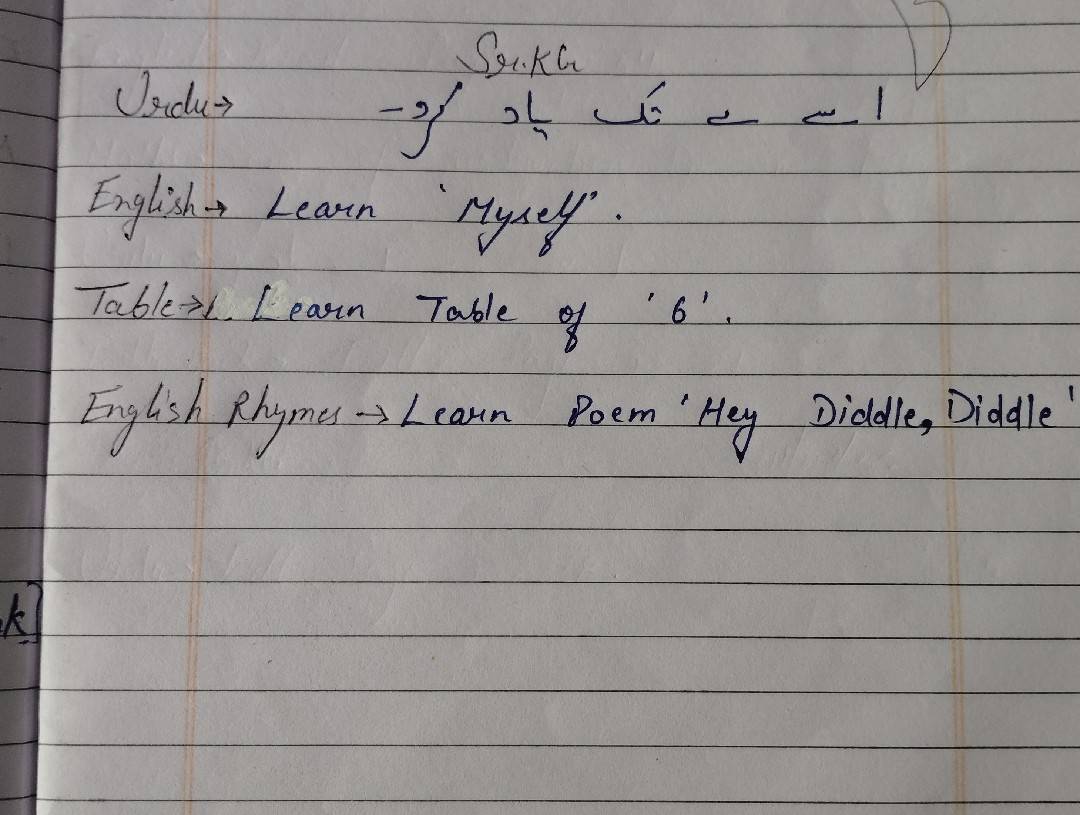 Urdu→ ا سے ے تک یاد کرو-
English→ Learn 'Myself'.
Table→ Learn Table of '6'.
English Rhymes→ Learn Poem 'Hey Diddle, Diddle'
k